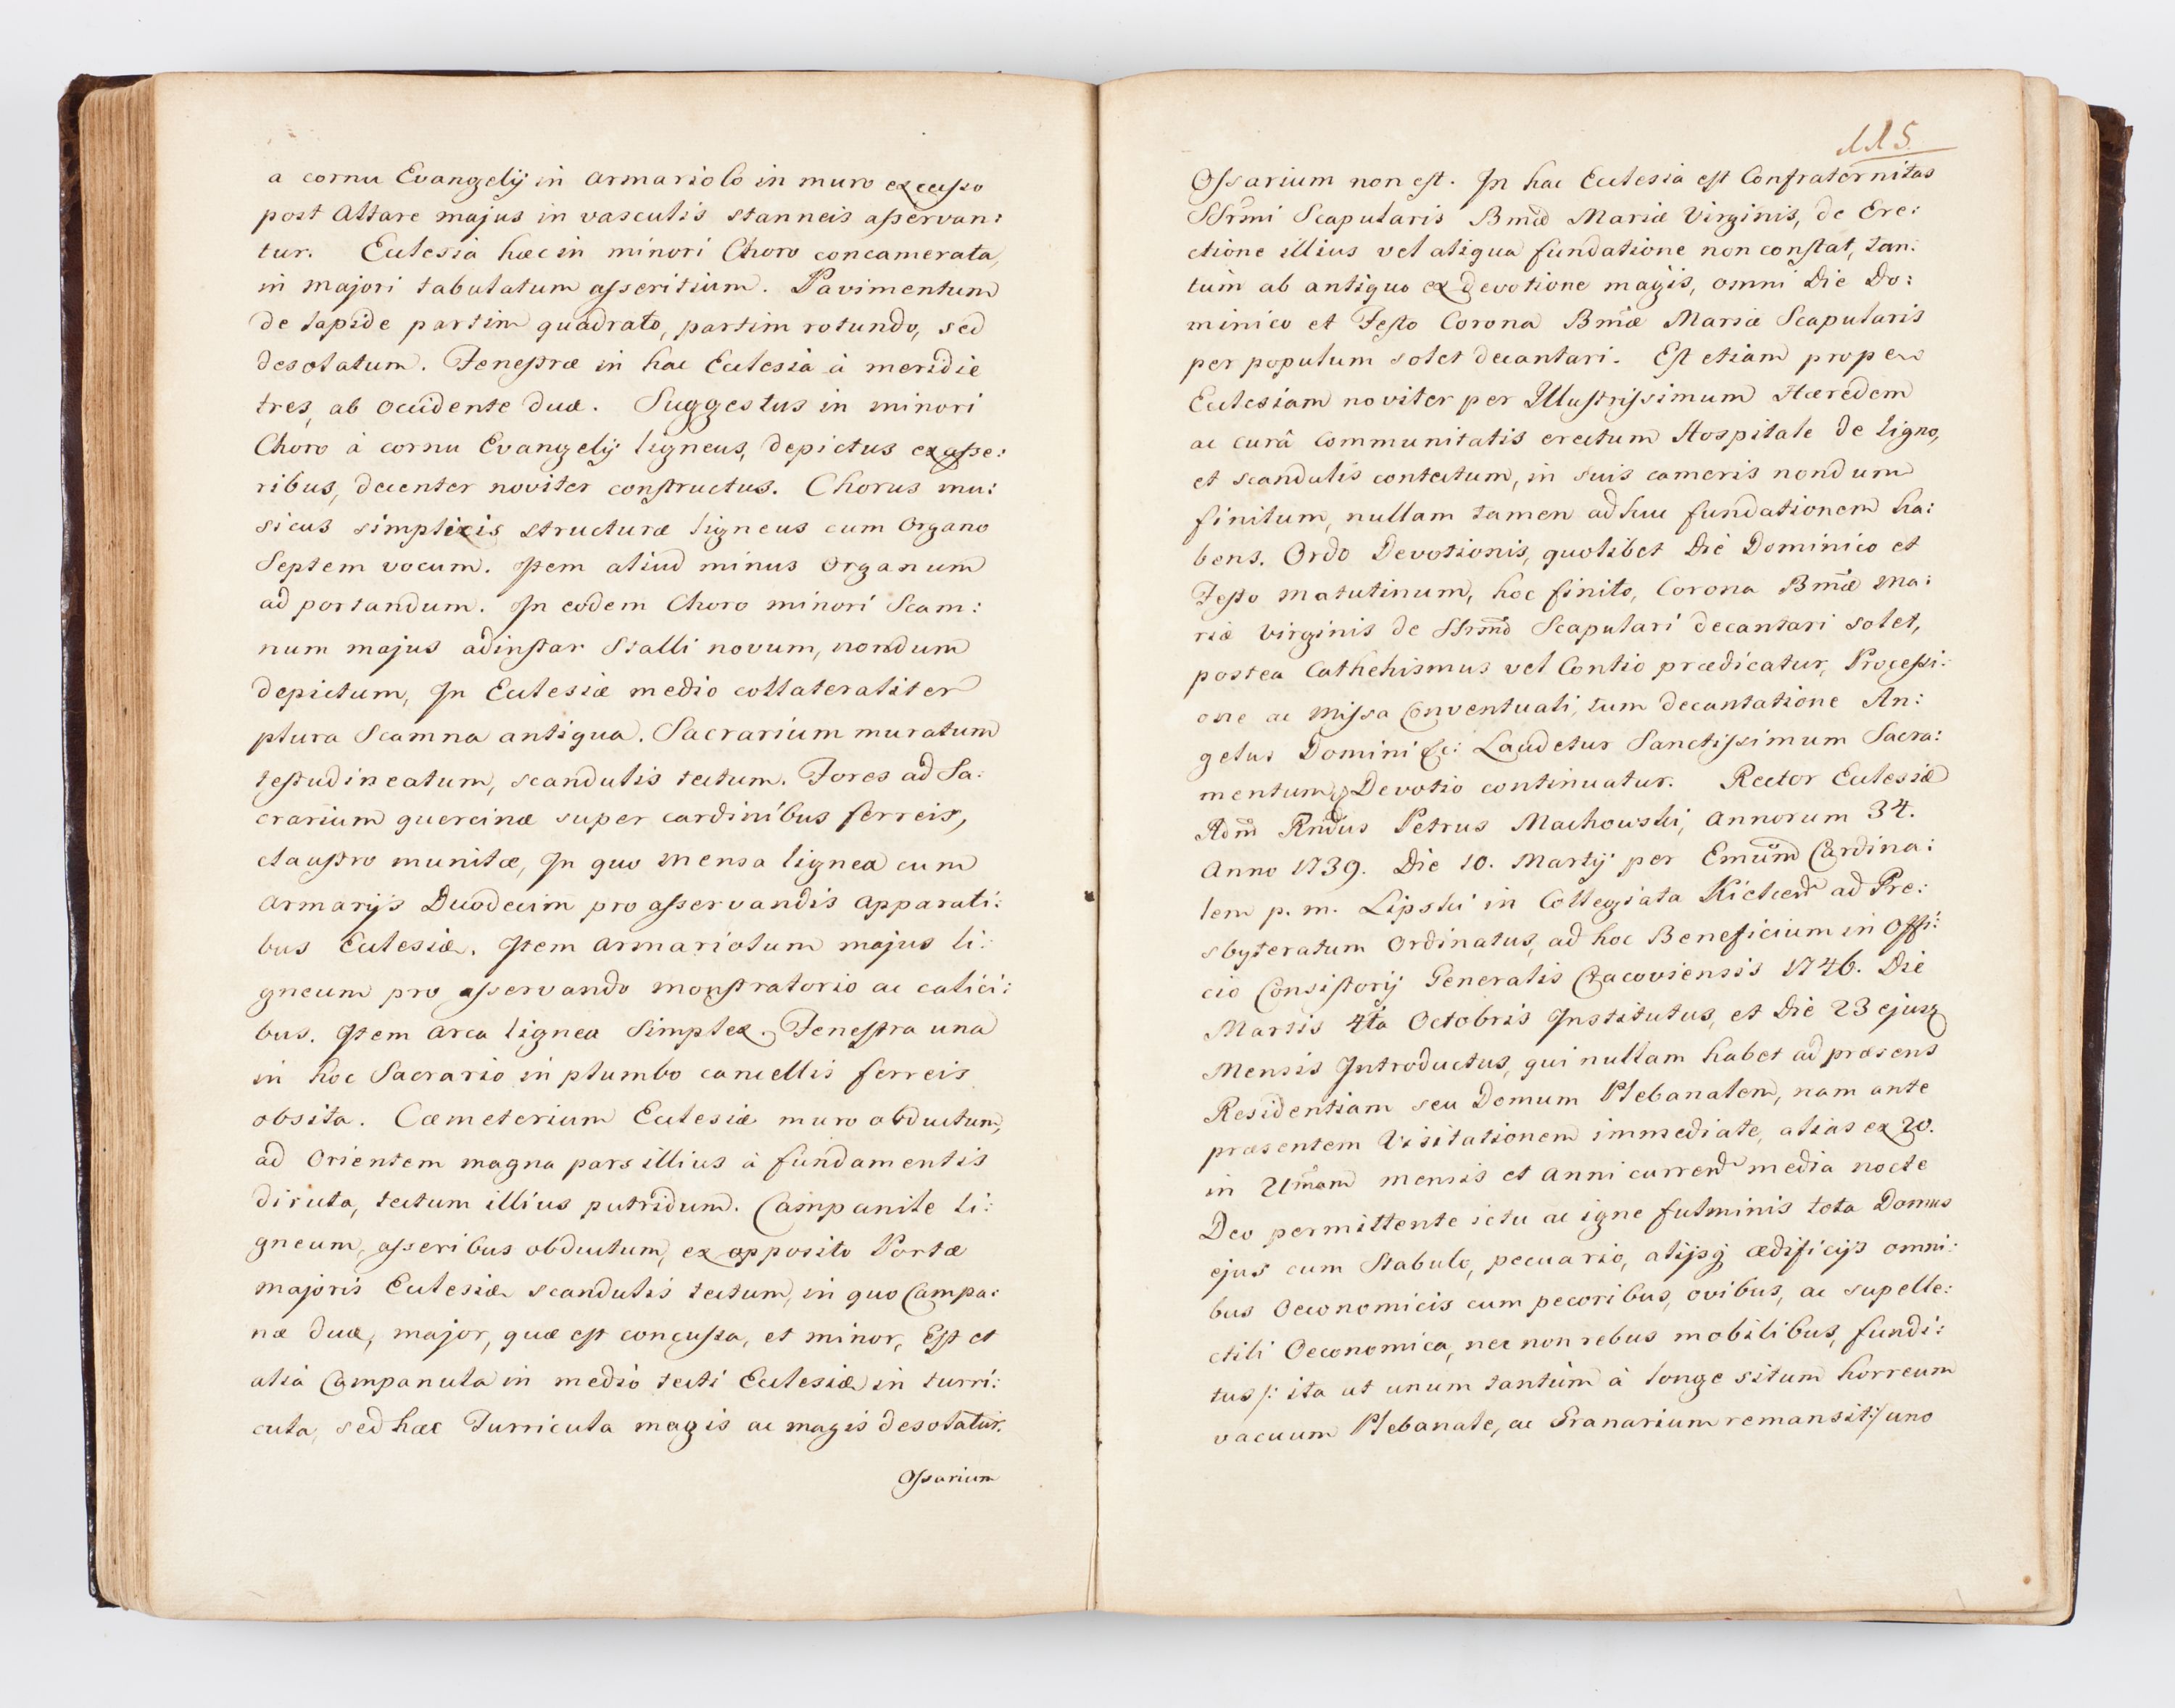 a cornu Evangelij in armariolo in muro excusso
post Altare majus in vasculis stanneis asservan:
tur. Ecclesia hæc in minori Choro concamerata,
in majori tabulatum asseritium. Pavimentum
de lapide partim quadrato, partim rotundo, sed
desolatum. Fenestræ in hac Ecclesia à meridie
tres, ab occidente duæ. Suggestus in minori
Choro à cornu Evangelij ligneus, depictus ex asse:
ribus, decenter noviter constructus. Chorus mu:
sicus simplicis structuræ ligneus cum Organo
Septem vocum. Item aliud minus Organum
ad portandum. In eodem Choro minori Scam:
num majus adinstar Stalli novum, nondum
depictum, In Ecclesiæ medio collateraliter
plura Scamna antiqua. Sacrarium muratum
testudineatum, scandulis tectum. Fores ad Sa:
crarium quercinæ super cardinibus ferreis,
claustro munitæ, In quo mensa lignea cum
Armarijs Duodecim pro asservandis apparati:
bus Ecclesiæ. Item armariolum majus li:
gneum pro asservando monstratorio ac calici:
bus. Item arca lignea simplex. Fenestra una
in hoc Sacrario in plumbo cancellis ferreis
obsita. Cæmeterium Ecclesiæ muro obductum,
ad Orientem magna pars illius à fundamentis
diruta, tectum illius putridum. Campanile li:
gneum, asseribus obductum, ex opposito Portæ
majoris Ecclesiæ scandulis tectum, in quo Campa:
næ duæ, major, quæ est concussa, et minor, Est et
alia Campanula in medio tecti Ecclesiæ in turri:
cula, sed hæc Turricula magis ac magis desolatur.
Ossarium
115.
Ossarium non est. In hac Ecclesia est Confraternitas
SSrmi Scapularis Bmæ Mariæ Virginis, de Ere:
ctione illius vel aliqua fundatione non constat, tan:
tum ab antiquo ex devotione magis, omni Die Do:
minico et Festo Corona Bmæ Mariæ Scapularis
per populum solet decantari. Est etiam prope
Ecclesiam noviter per Illustrissimum Hæredem
ac curâ Communitatis erectum Hospitale de ligno,
et scandulis contectum, in suis cameris nondum
finitum, nullam tamen adhuc fundationem ha:
bens. Ordo Devotionis, quolibet Die Dominico et
Festo matutinum, hoc finito, Corona Bmæ Ma:
riæ Virginis de SSrmo Scapulari decantari solet,
postea Cathehismus vel Contio prædicatur, Processi:
one ac Missa Conventuali, tum decantatione An:
gelus Domini &c: Laudetur Sanctissimum Sacra:
mentum, Devotio continuatur. Rector Ecclesiæ
Adm Rndus Petrus Machowski, annorum 34.
Anno 1739. Die 10. Martij per Emum Cardina:
lem p. m. Lipski in Collegiata Kielcen ad Pre:
sbyteratum Ordinatus, ad hoc Beneficium in Offi:
cio Consistorij Generalis Cracoviensis 1746. Die
Martis 4ta Octobris Institutus, et Die 23 ejusq
Mensis Introductus, qui nullam habet ad præsens
Residentiam seu Domum Plebanalem, nam ante
præsentem Visitationem immediate, alias ex 20.
in 21mam mensis et anni curren media nocte
Deo permittente ictu ac igne fulminis tota Domus
ejus cum Stabulo, pecuario, alijsq ædificijs omni:
bus Oeconomicis cum pecoribus, ovibus, ac supelle:
ctili Oeconomica, nec non rebus mobilibus, fundi:
tus /: ita ut unum tantùm à longe situm horreum
vacuum Plebanale, ac Granarium remansit :/ uno